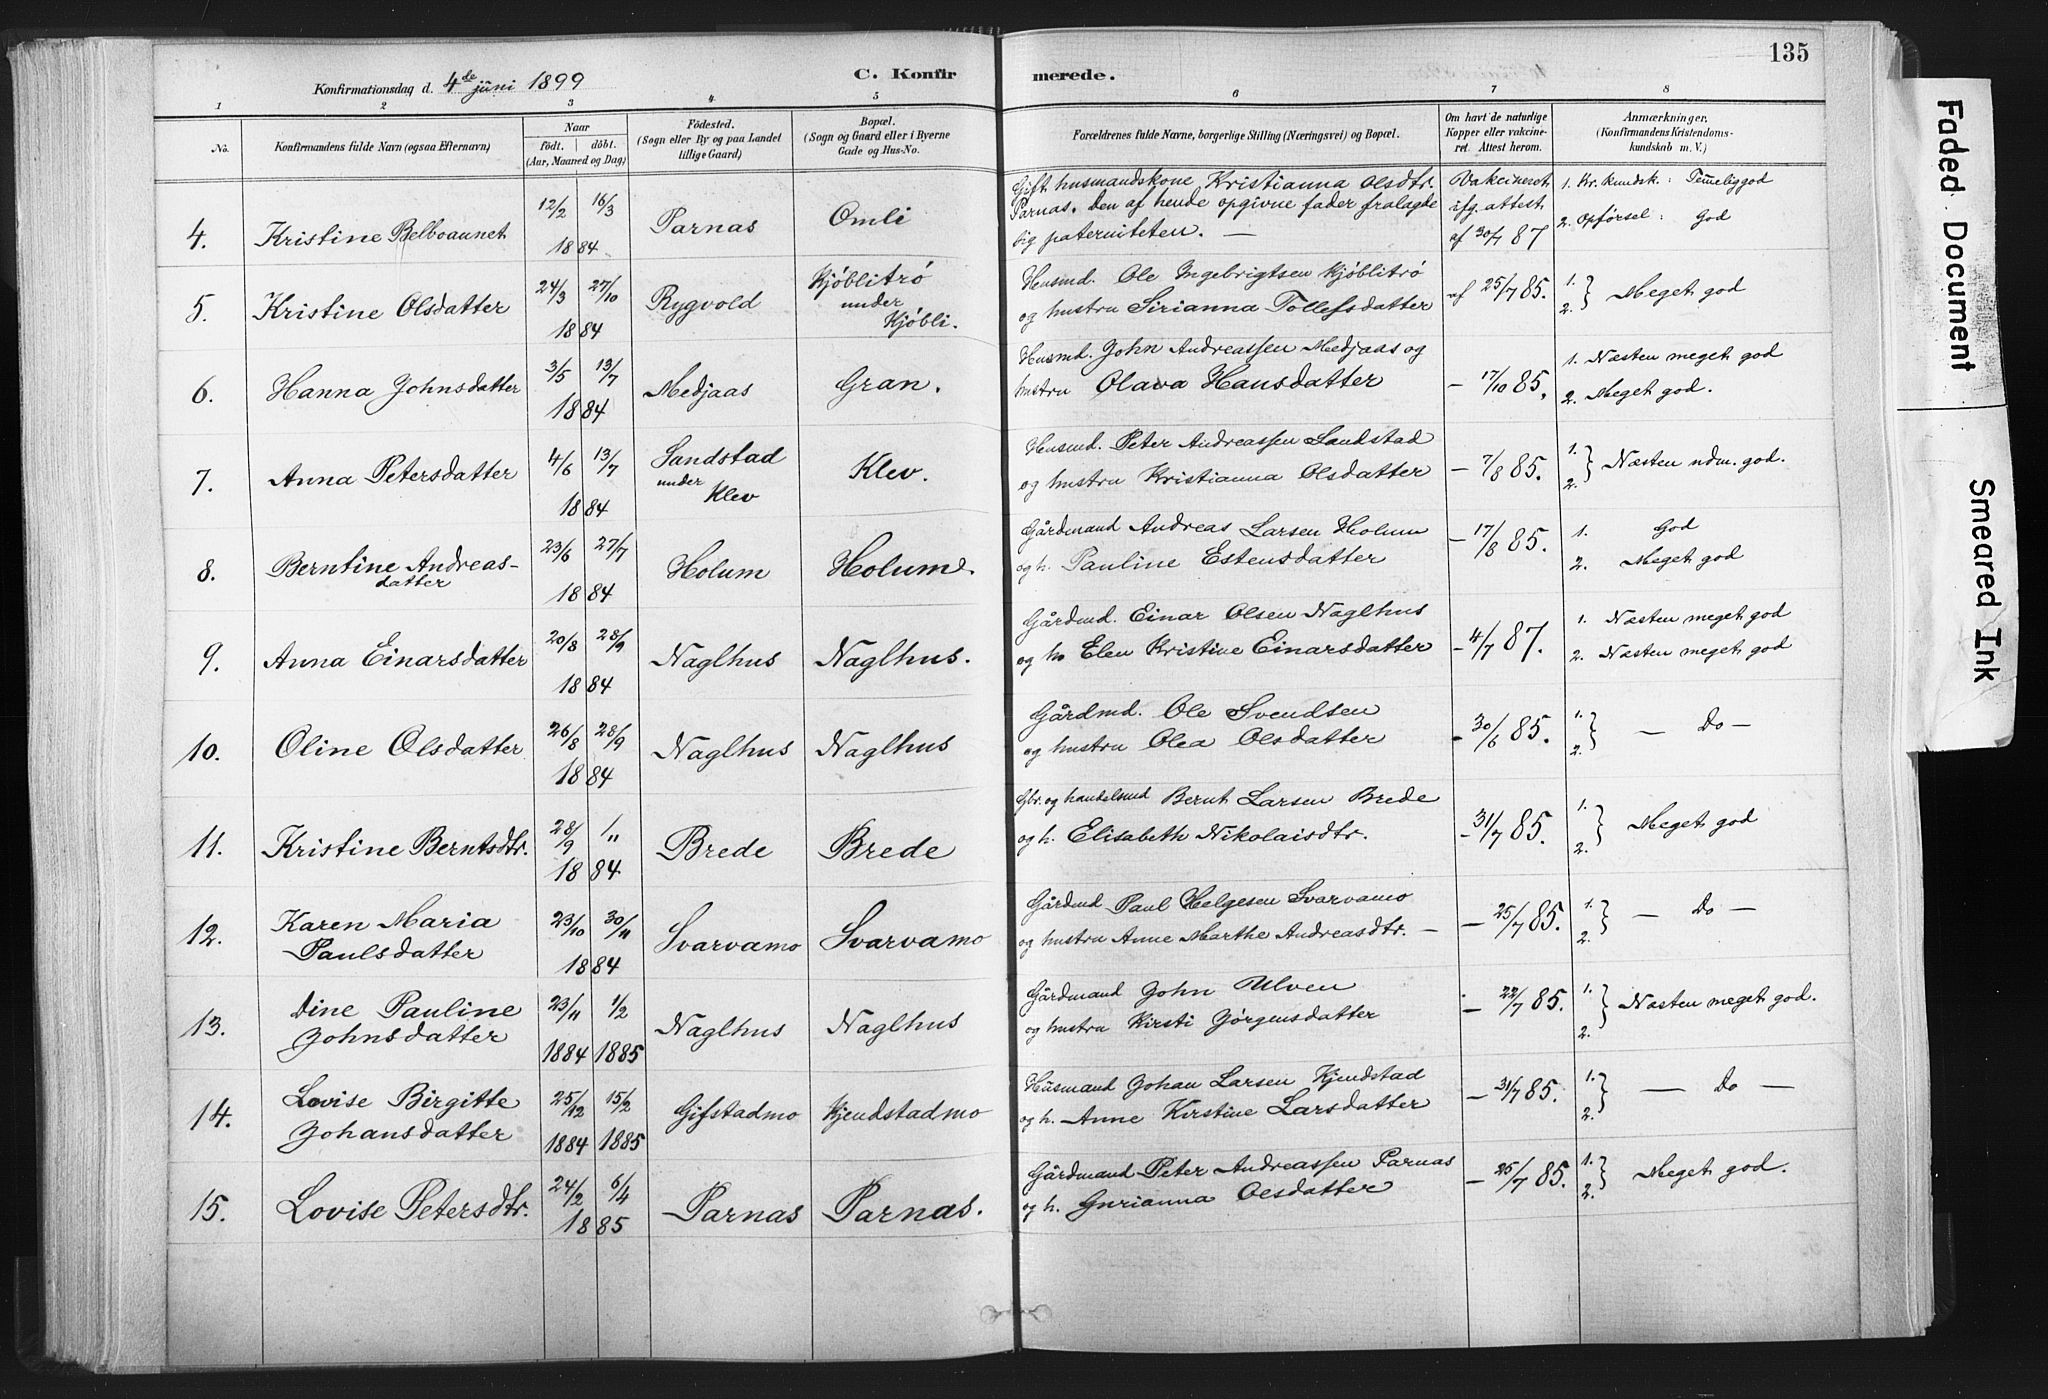 135
Konfirmationsdag d. 4de juni 1899 C. Konfirmerede.
1 2 3 4 5 6 7 8
No. Konfirmandens fulde Navn (ogsaa Efternavn) Naar født. døbt. (Aar, Maaned og Dag) Fødested. (Sogn eller By og paa Landet tillige Gaard) Bopæl. (Sogn og Gaard eller i Byerne Gade og Hus-No. Forældrenes fulde Navne, borgerlige Stilling (Næringsvei) og Bopæl. Om havt de naturlige Kopper eller vakcineret. Attest herom. Anmærkninger. (Konfirmandens Kristendomskundskab m. V.)
4. Kristine Belboaunet 12/2 16/3 1884 Parnas Omli
Gift husmandskone Kristianna Olsdtr. Vakcineret 1. Kr. kundsk.: Temelig god
Parnas. Den af hende opgivne fader fralagde ifg. attest 2. Opførsel: God
sig paterniteten. — af 30/7 87
5. Kristine Olsdatter 24/3 27/10 1884 Rygvold Kjøblitrø under Kjøbli.
Husmd. Ole Ingebrigtsen Kjøblitrø af 25/7 85. 1. 2. } Meget god
og hustru Sirianna Tollefsdatter
6. Hanna Johnsdatter 3/5 13/7 1884 Medjaas Gran.
Husmd. John Andreassen Medjaas og 1. Næsten meget god
hustru Olava Hansdatter — 17/10 85. 2. Meget god.
7. Anna Petersdatter 4/6 13/7 1884 Sandstad under Klev Klev.
Husmd. Peter Andreassen Sandstad
og hustru Kristianna Olsdatter — 7/8 85. 1. 2. } Næsten udm. god.
8. Berntine Andreas-
datter 23/6 27/7 1884 Holum Holum.
Gårdmand Andreas Larsen Holum — 17/8 85. 1. God
og h. Pauline Estensdatter 2. Meget god
9. Anna Einarsdatter 20/8 28/9 1884 Naglhus Naglhus.
Gårdmd. Einar Olsen Naglhus 1. Næsten meget god
og h. Elen Kristine Einarsdatter — 4/7 87. 2. Næsten meget god
10. Oline Olsdatter 26/8 28/9 1884 Naglhus Naglhus
Gårdmd. Ole Svendsen
og hustru Olea Olsdatter — 30/6 85. 1. 2. } — Do —
11. Kristine Berntsdtr. 28/9 1/11 1884 Brede Brede
Gbr. og handelsmd Bernt Larsen Brede
og h. Elisabeth Nikolaisdtr. — 31/7 85. 1. 2. } Meget god
12. Karen Maria
Paulsdatter 23/10 30/11 1884 Svarvamo Svarvamo
Gårdmd Paul Helgesen Svarvamo
og hustru Anne Marthe Andreasdtr. — — 25/7 85. 1. 2. } — Do —
13. Dine Pauline
Johnsdatter 23/11 1884 1/2 1885 Naglhus Naglhus
Gårdmand John Ulven
og hustru Kirsti Jörgensdatter — 22/7 85. 1. 2. } Næsten meget god.
14. Lovise Birgitte
Johansdatter 25/12 1884 15/2 1885 Gifstadmo Kjendstadmo
Husmand Johan Larsen Kjendstad
og h. Anne Kirstine Larsdatter — 31/7 85. 1. 2. } — Do —
15. Lovise Petersdtr. 24/2 6/4 1885 Parnas Parnas.
Gårdmand Peter Andreassen Parnas
og h. Gurianna Olsdatter — 25/7 85. 1. 2. } Meget god.
Faded Document
Smeared Ink